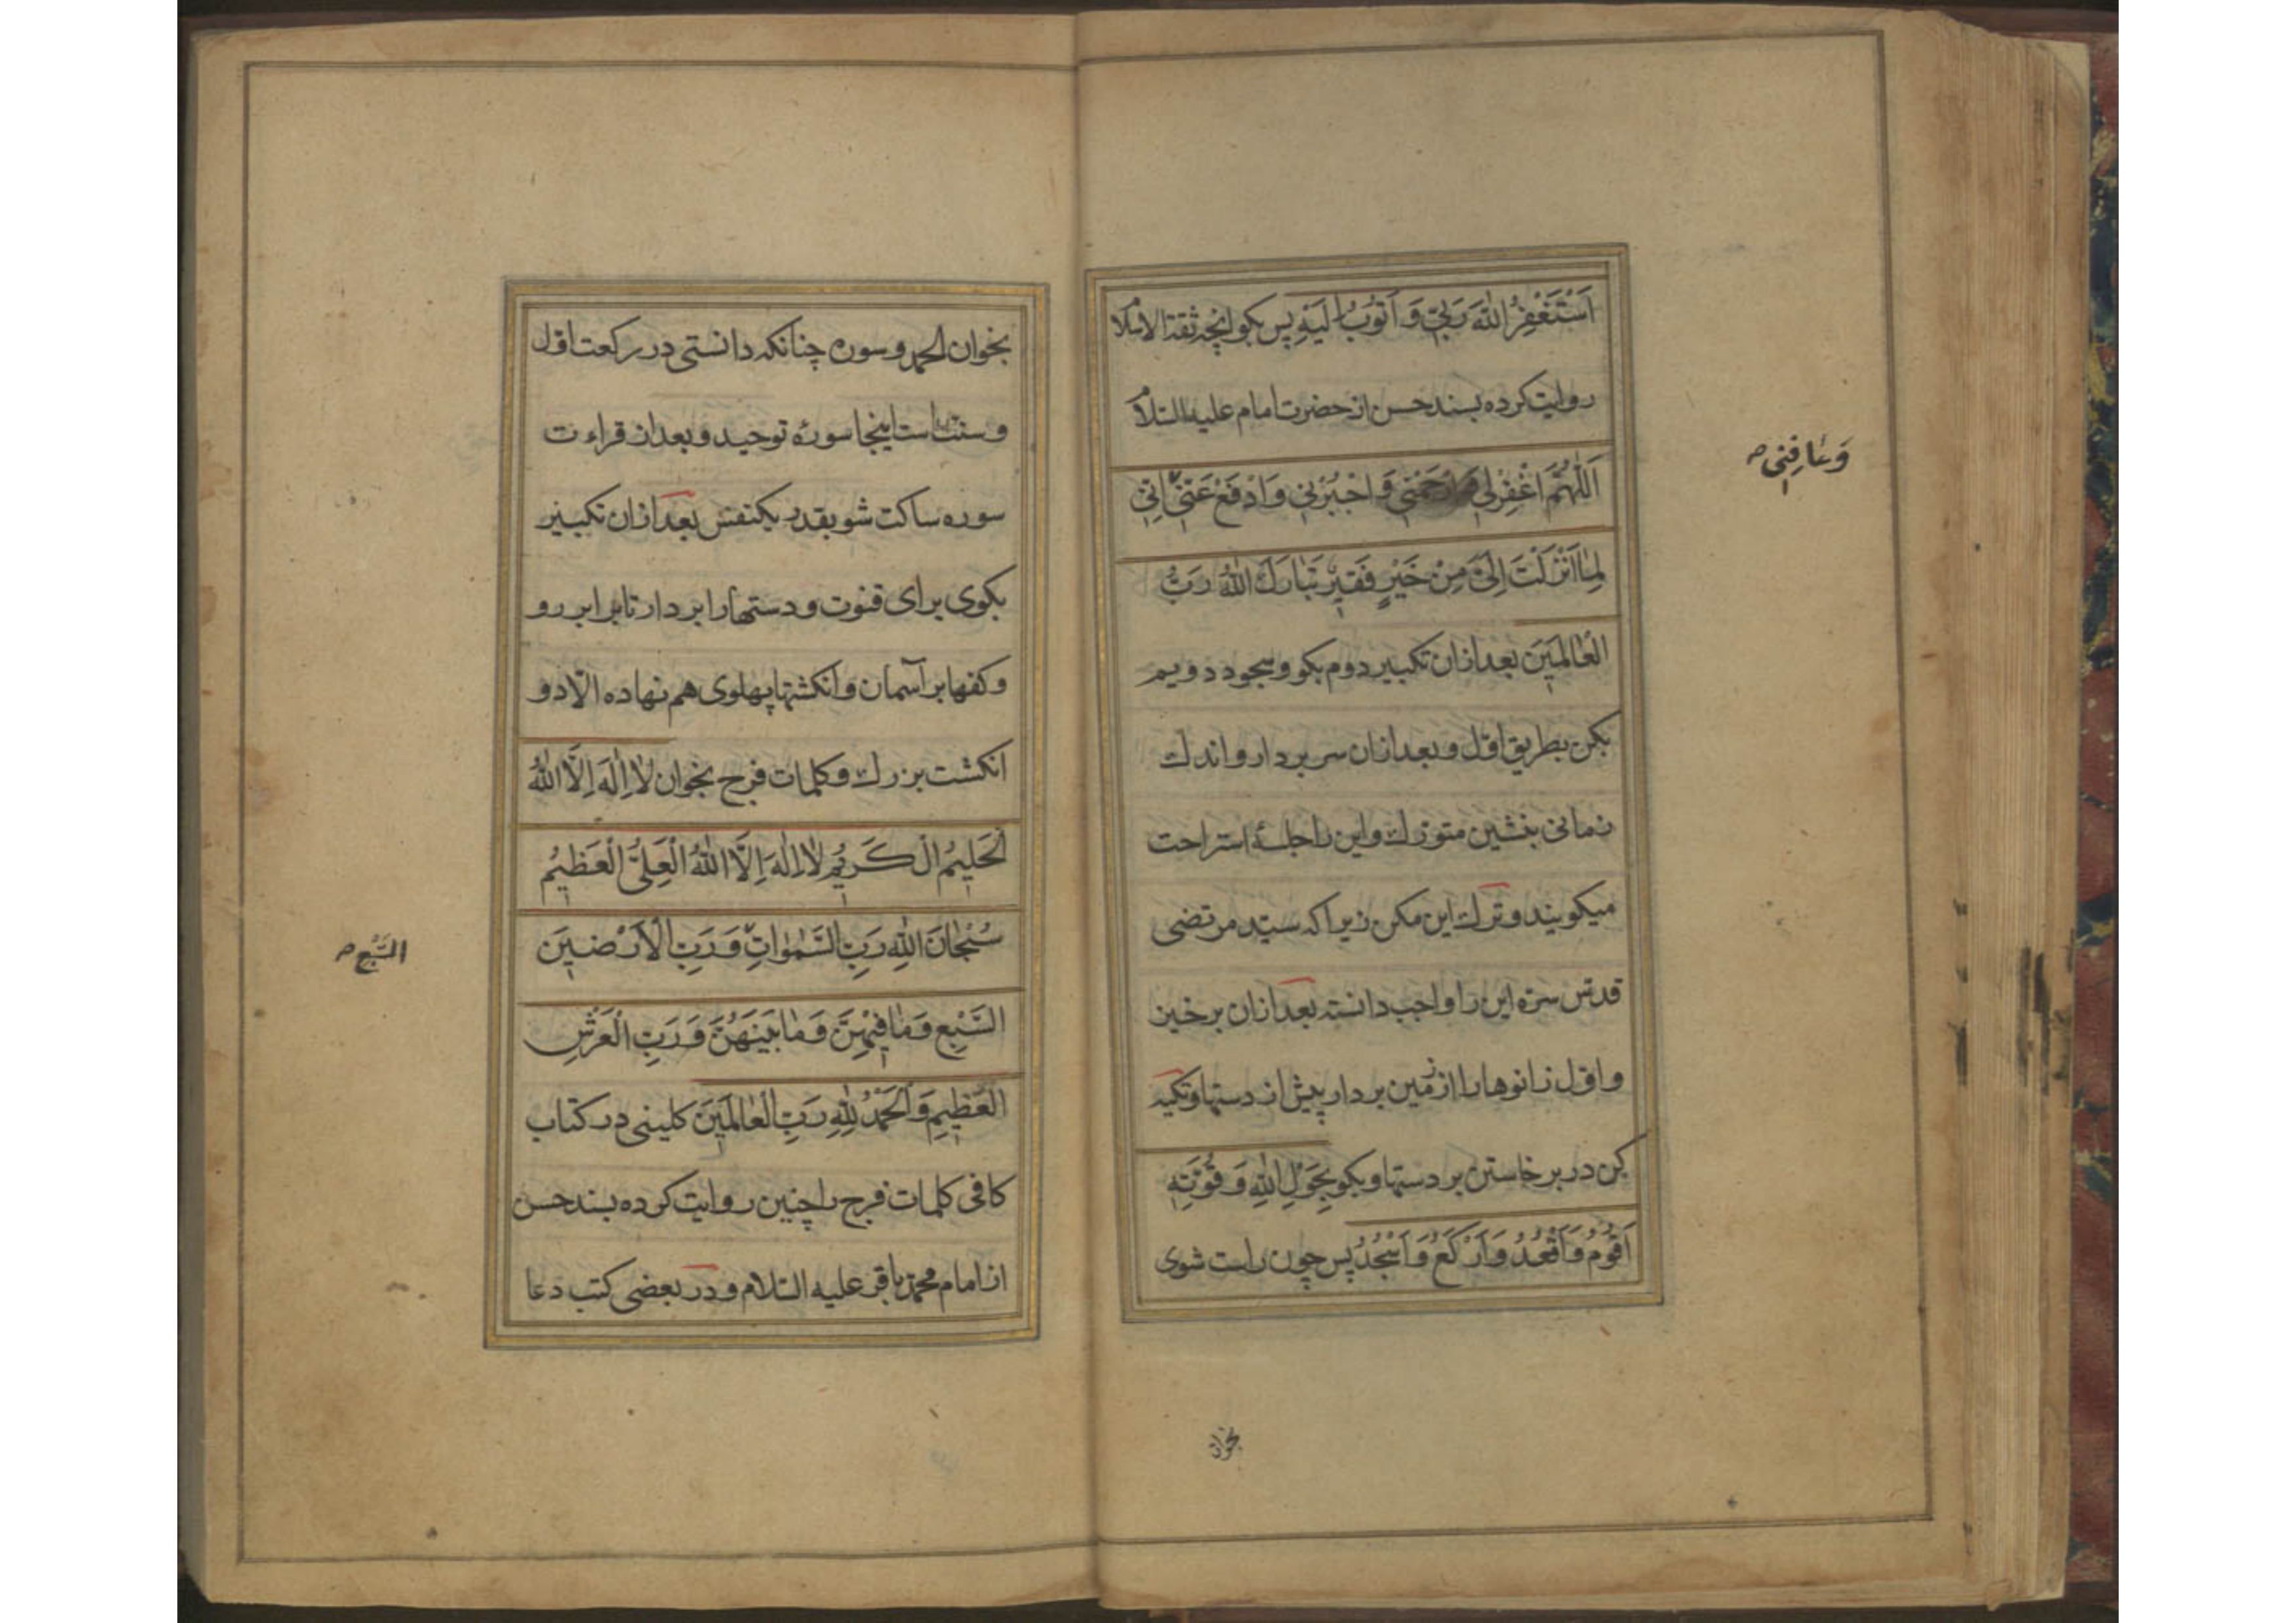 اَسْتَغْفِرُ اللّٰهَ رَبّي وَ اَتُوبُ اِلَيْهِ پس بكو انچه ثقة الاسلام
روايت كرده بسند حسن از حضرت امام عليه السلام
اَللّٰهُمَّ اغْفِرْلي وَارْحَمْني وَ اجْبُرْني وَ ادْفَعْ عَنّي اِنّي
لِمٰا اَنْزَلْتَ اِلَيَّ مِنْ خَيْرٍ فَقيرٌ تَبٰارَكَ اللّٰهُ رَبُّ
الْعٰالَمينَ بعد ازان تكبير دوم بكو و سجود دويم
بكن بطريق اوّل و بعد ازان سر بردار و اندك
زمانى بنشين متورك و اين را جلسهٔ استراحت
ميكويند و ترك اين مكن زيرا كه سيّد مرتضى
قدّس سرّه اين را واجب دانسته بعد ازان برخيز
و اوّل زانوها را از زمين بردار پيش از دستها و تكيه
كن در برخاستن بر دستها و بكو بِحَوْلِ اللّٰهِ وَ قُوَّتِهِ
اَقُومُ وَ اَقْعُدُ وَ اَرْكَعُ وَ اَسْجُدُ پس چون راست شوى
وَ عٰافِني صح
بخوان
بخوان الحمد و سوره چنانكه دانستى در ركعت اوّل
و سنّت است اينجا سورهٔ توحيد و بعد از قراءت
سوره ساكت شو بقدر يكنفس بعد ازان تكبير
بكوى براى قنوت و دستها را بردار تا برابر رو
و كفها بر آسمان و انكشتها پهلوى هم نهاده الّا دو
انكشت بزرك و كلمات فرج بخوان لٰا اِلٰهَ اِلَّا اللّٰهُ
الْحَليمُ الْكَريمُ لٰا اِلٰهَ اِلَّا اللّٰهُ الْعَلِيُّ الْعَظيمُ
سُبْحٰانَ اللّٰهِ رَبِّ السَّمٰوٰاتِ وَ رَبِّ الْاَرَضينَ
السَّبْعِ وَ مٰا فيهِنَّ وَ مٰا بَيْنَهُنَّ وَ رَبِّ الْعَرْشِ
الْعَظيمِ وَ الْحَمْدُ لِلّٰهِ رَبِّ الْعٰالَمينَ كلينى در كتاب
كافى كلمات فرج را چنين روايت كرده بسند حسن
از امام محمّد باقر عليه السلام و در بعضى كتب دعا
السَّبْع صح